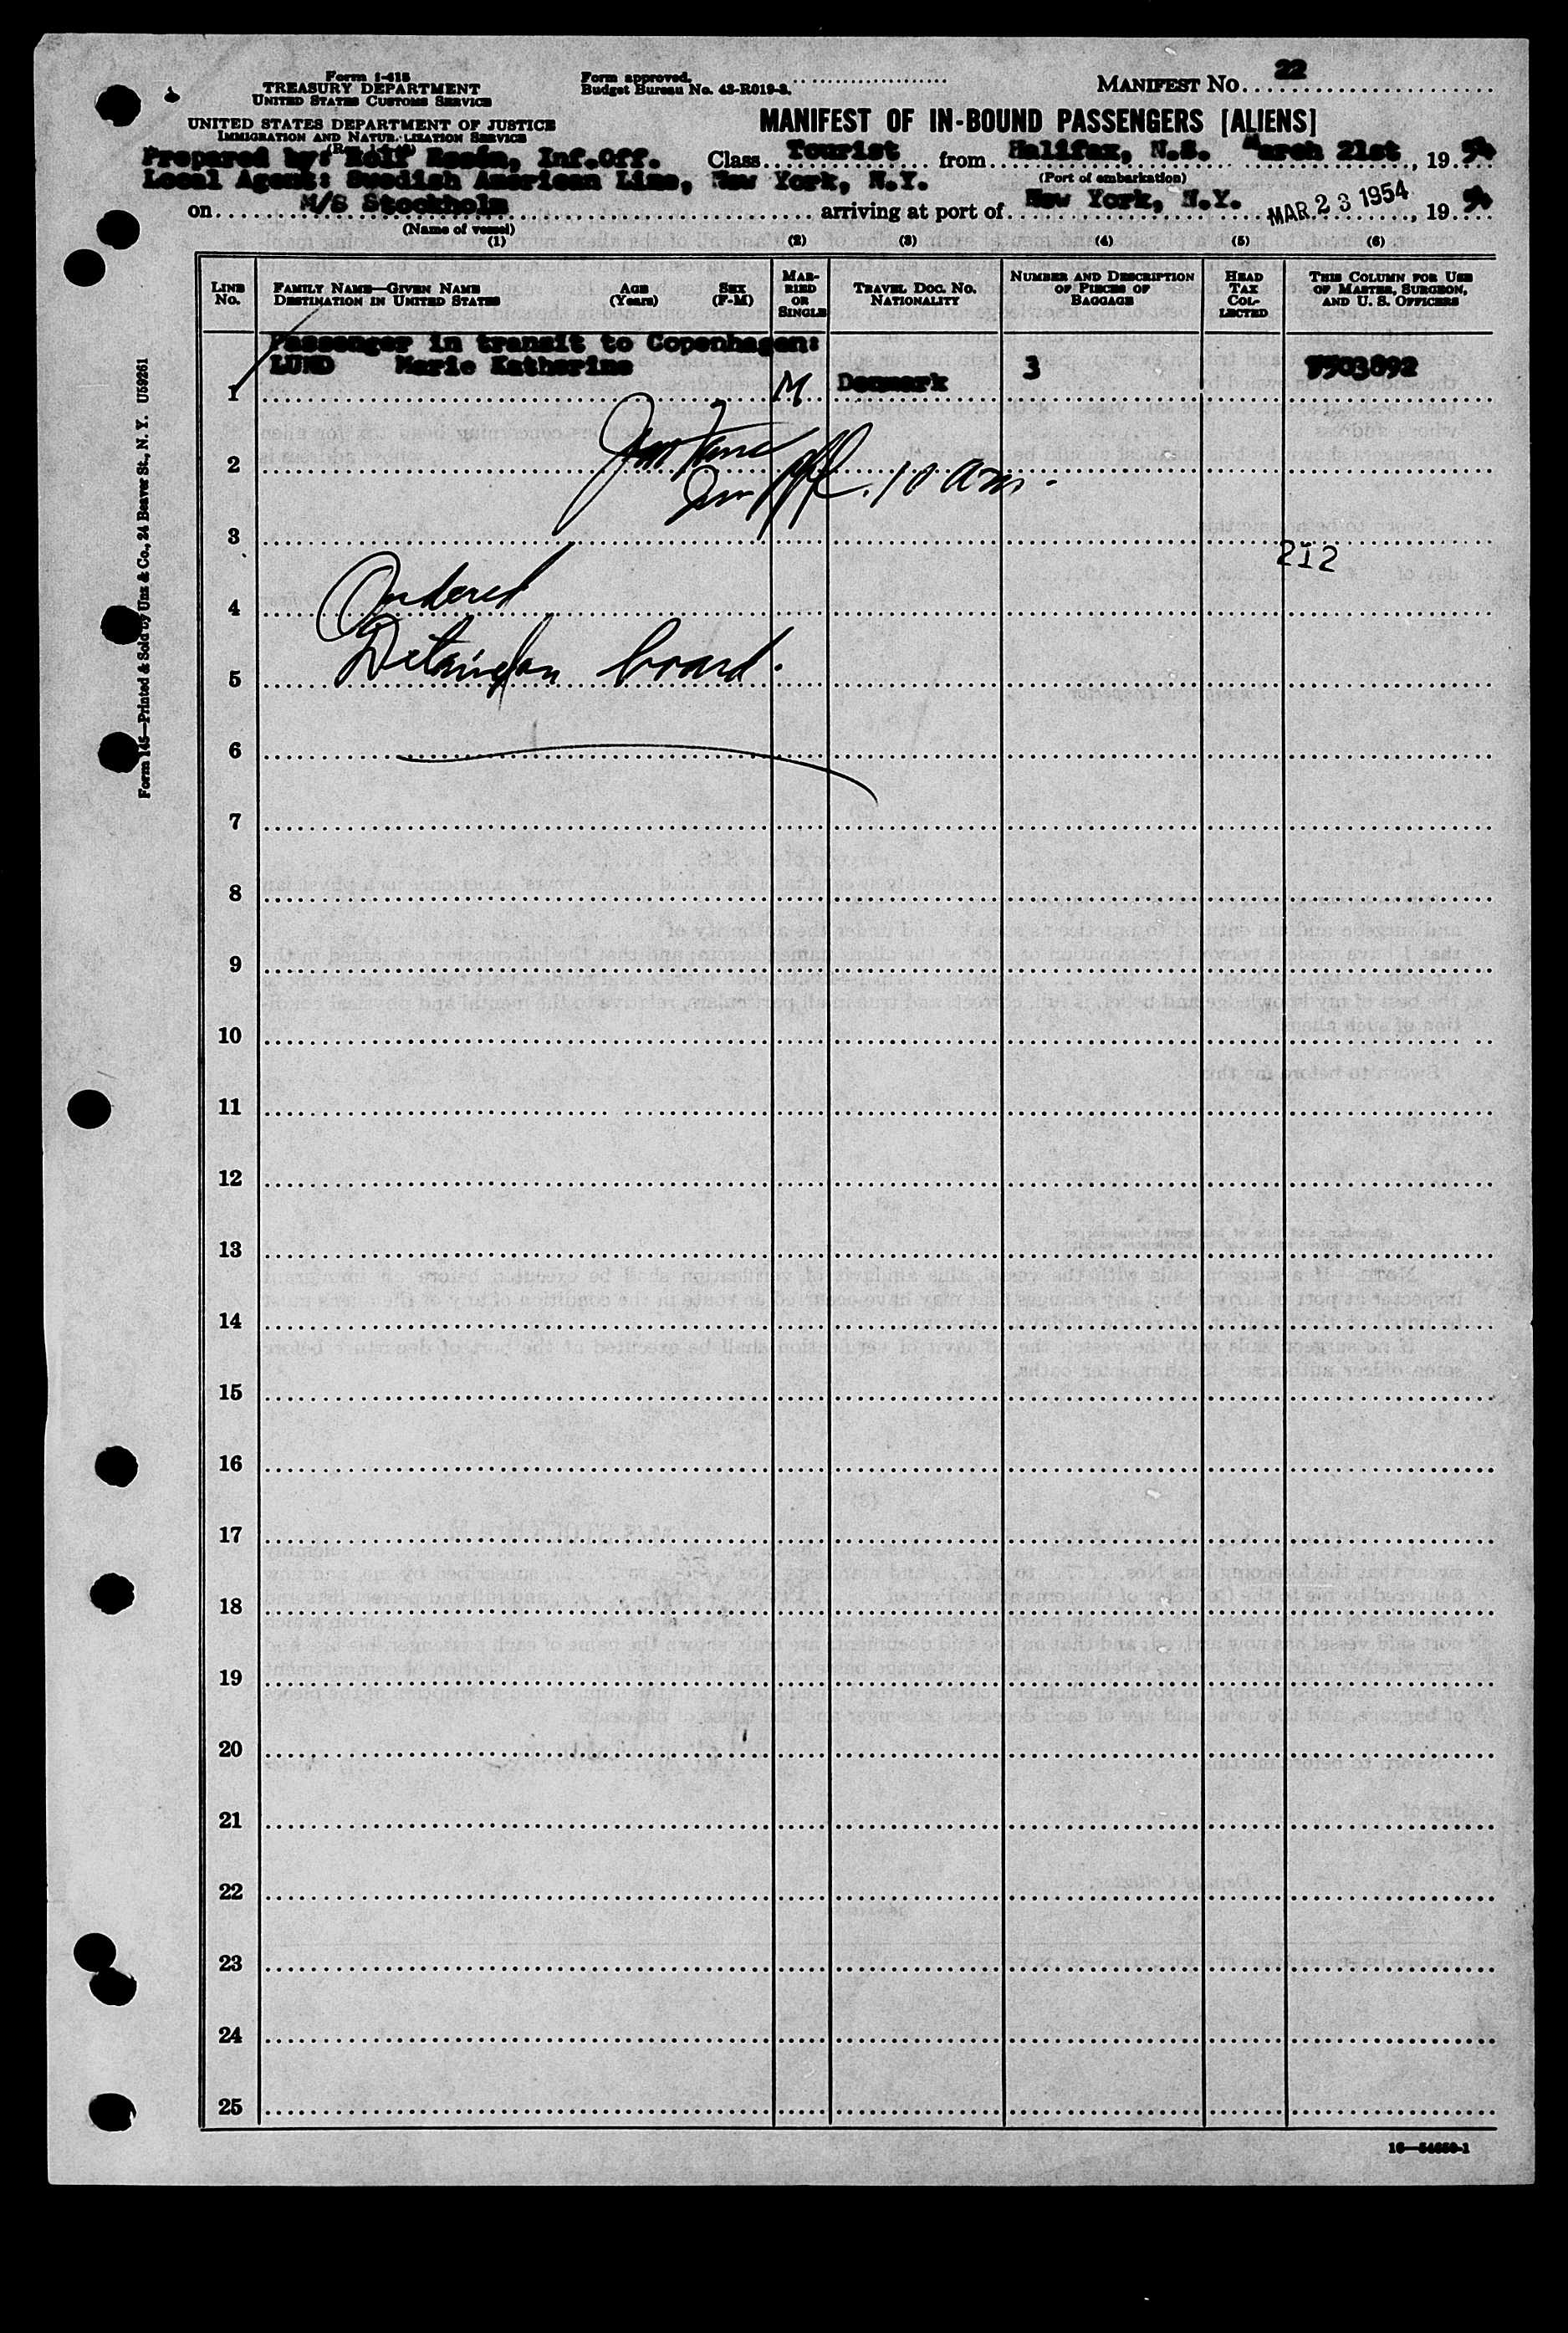 Form I-418
TREASURY DEPARTMENT
UNITED STATES CUSTOMS SERVICE
UNITED STATES DEPARTMENT OF JUSTICE
IMMIGRATION AND NATURALIZATION SERVICE
Form approved.
Budget Bureau No. 43-R019-3.
MANIFEST NO. 22
MANIFEST OF IN-BOUND PASSENGERS [ALIENS]
Prepared by: Rolf Rosén, Inf.Off. Class Tourist from Halifax, N.S. March 21st, 19 54
(Port of embarkation)
Local Agent: Swedish American Line, New York, N.Y.
on M/S Stockholm arriving at port of New York, N.Y. MAR 23 1954, 19 54
(Name of vessel)
(1) (2) (3) (4) (5) (6)
LINE No.
FAMILY NAME—GIVEN NAME
DESTINATION IN UNITED STATES
AGE (Years)
SEX (F-M)
MARRIED OR SINGLE
TRAVEL DOC. NO.
NATIONALITY
NUMBER AND DESCRIPTION OF PIECES OF BAGGAGE
HEAD TAX COLLECTED
THIS COLUMN FOR USE OF MASTER, SURGEON, AND U. S. OFFICERS
Passenger in transit to Copenhagen:
1 LUND Marie Katherine M Denmark 3
2
Off. 10 am.
3
212
4 Ordered
5 Detained on board.
6
7
8
9
10
11
12
13
14
15
16
17
18
19
20
21
22
23
24
25
Form 145—Printed & Sold by Unz & Co., 24 Beaver St., N. Y. U59261